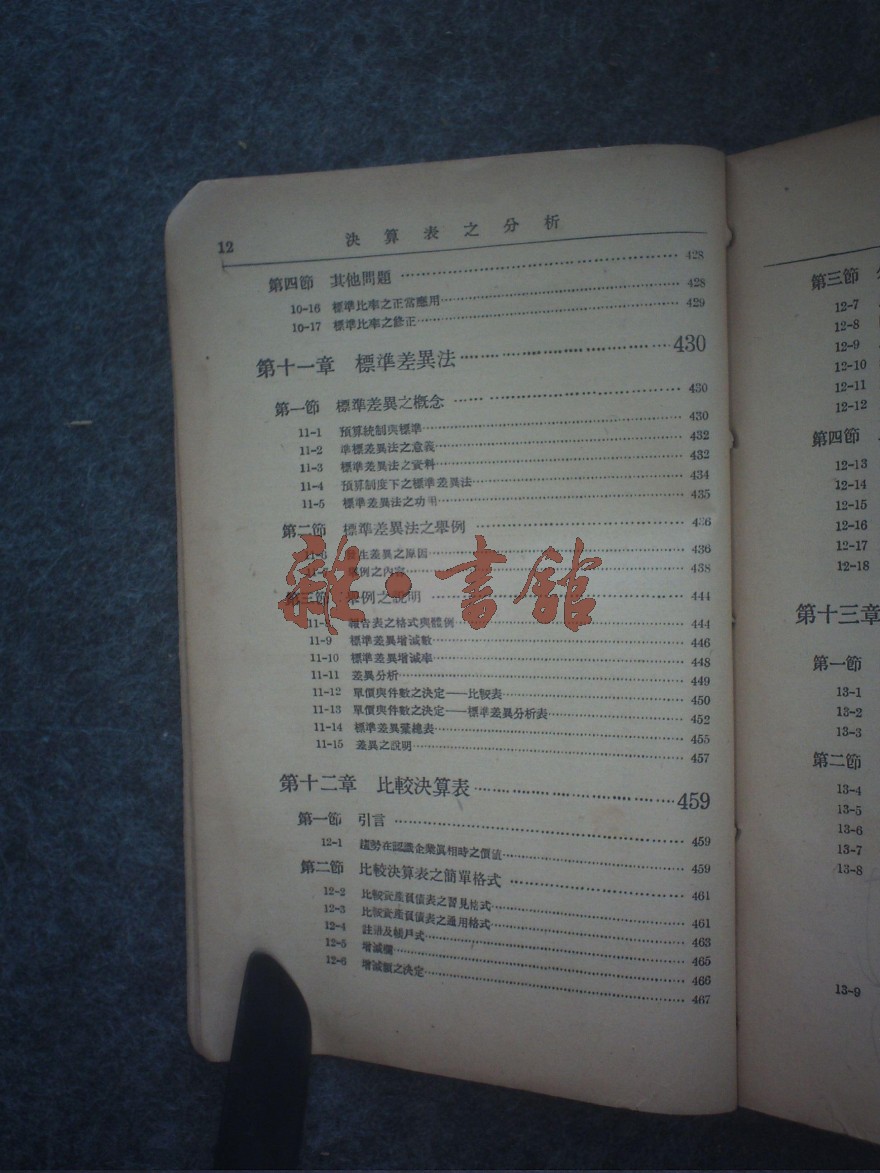 12 決算表之分析
第四節 其他問題 428
10-16 標準比率之正常應用 428
10-17 標準比率之修正 429
第十一章 標準差異法 430
第一節 標準差異之概念 430
11-1 預算統制與標準 430
11-2 準標差異法之意義 432
11-3 標準差異法之資料 432
11-4 預算制度下之標準差異法 434
11-5 標準差異法之功用 435
第二節 標準差異法之舉例 436
11-6 生差異之原因 436
例之內容 438
第三節 舉例之說明 444
報告表之格式與體例 444
11-9 標準差異增減數 446
11-10 標準差異增減率 448
11-11 差異分析 449
11-12 單價與件數之決定——比較表 450
11-13 單價與件數之決定——標準差異分析表 452
11-14 標準差異彙總表 455
11-15 差異之說明 457
第十二章 比較決算表 459
第一節 引言 459
12-1 趨勢在認識企業眞相時之價值 459
第二節 比較決算表之簡單格式 461
12-2 比較資產負債表之習見格式 461
12-3 比較資產負債表之通用格式 463
12-4 註語及帳戶式 465
12-5 增減欄 466
12-6 增減額之決定 467
雜·書館
第三節
12-7
12-8
12-9
12-10
12-11
12-12
第四節
12-13
12-14
12-15
12-16
12-17
12-18
第十三章
第一節
13-1
13-2
13-3
第二節
13-4
13-5
13-6
13-7
13-8
13-9